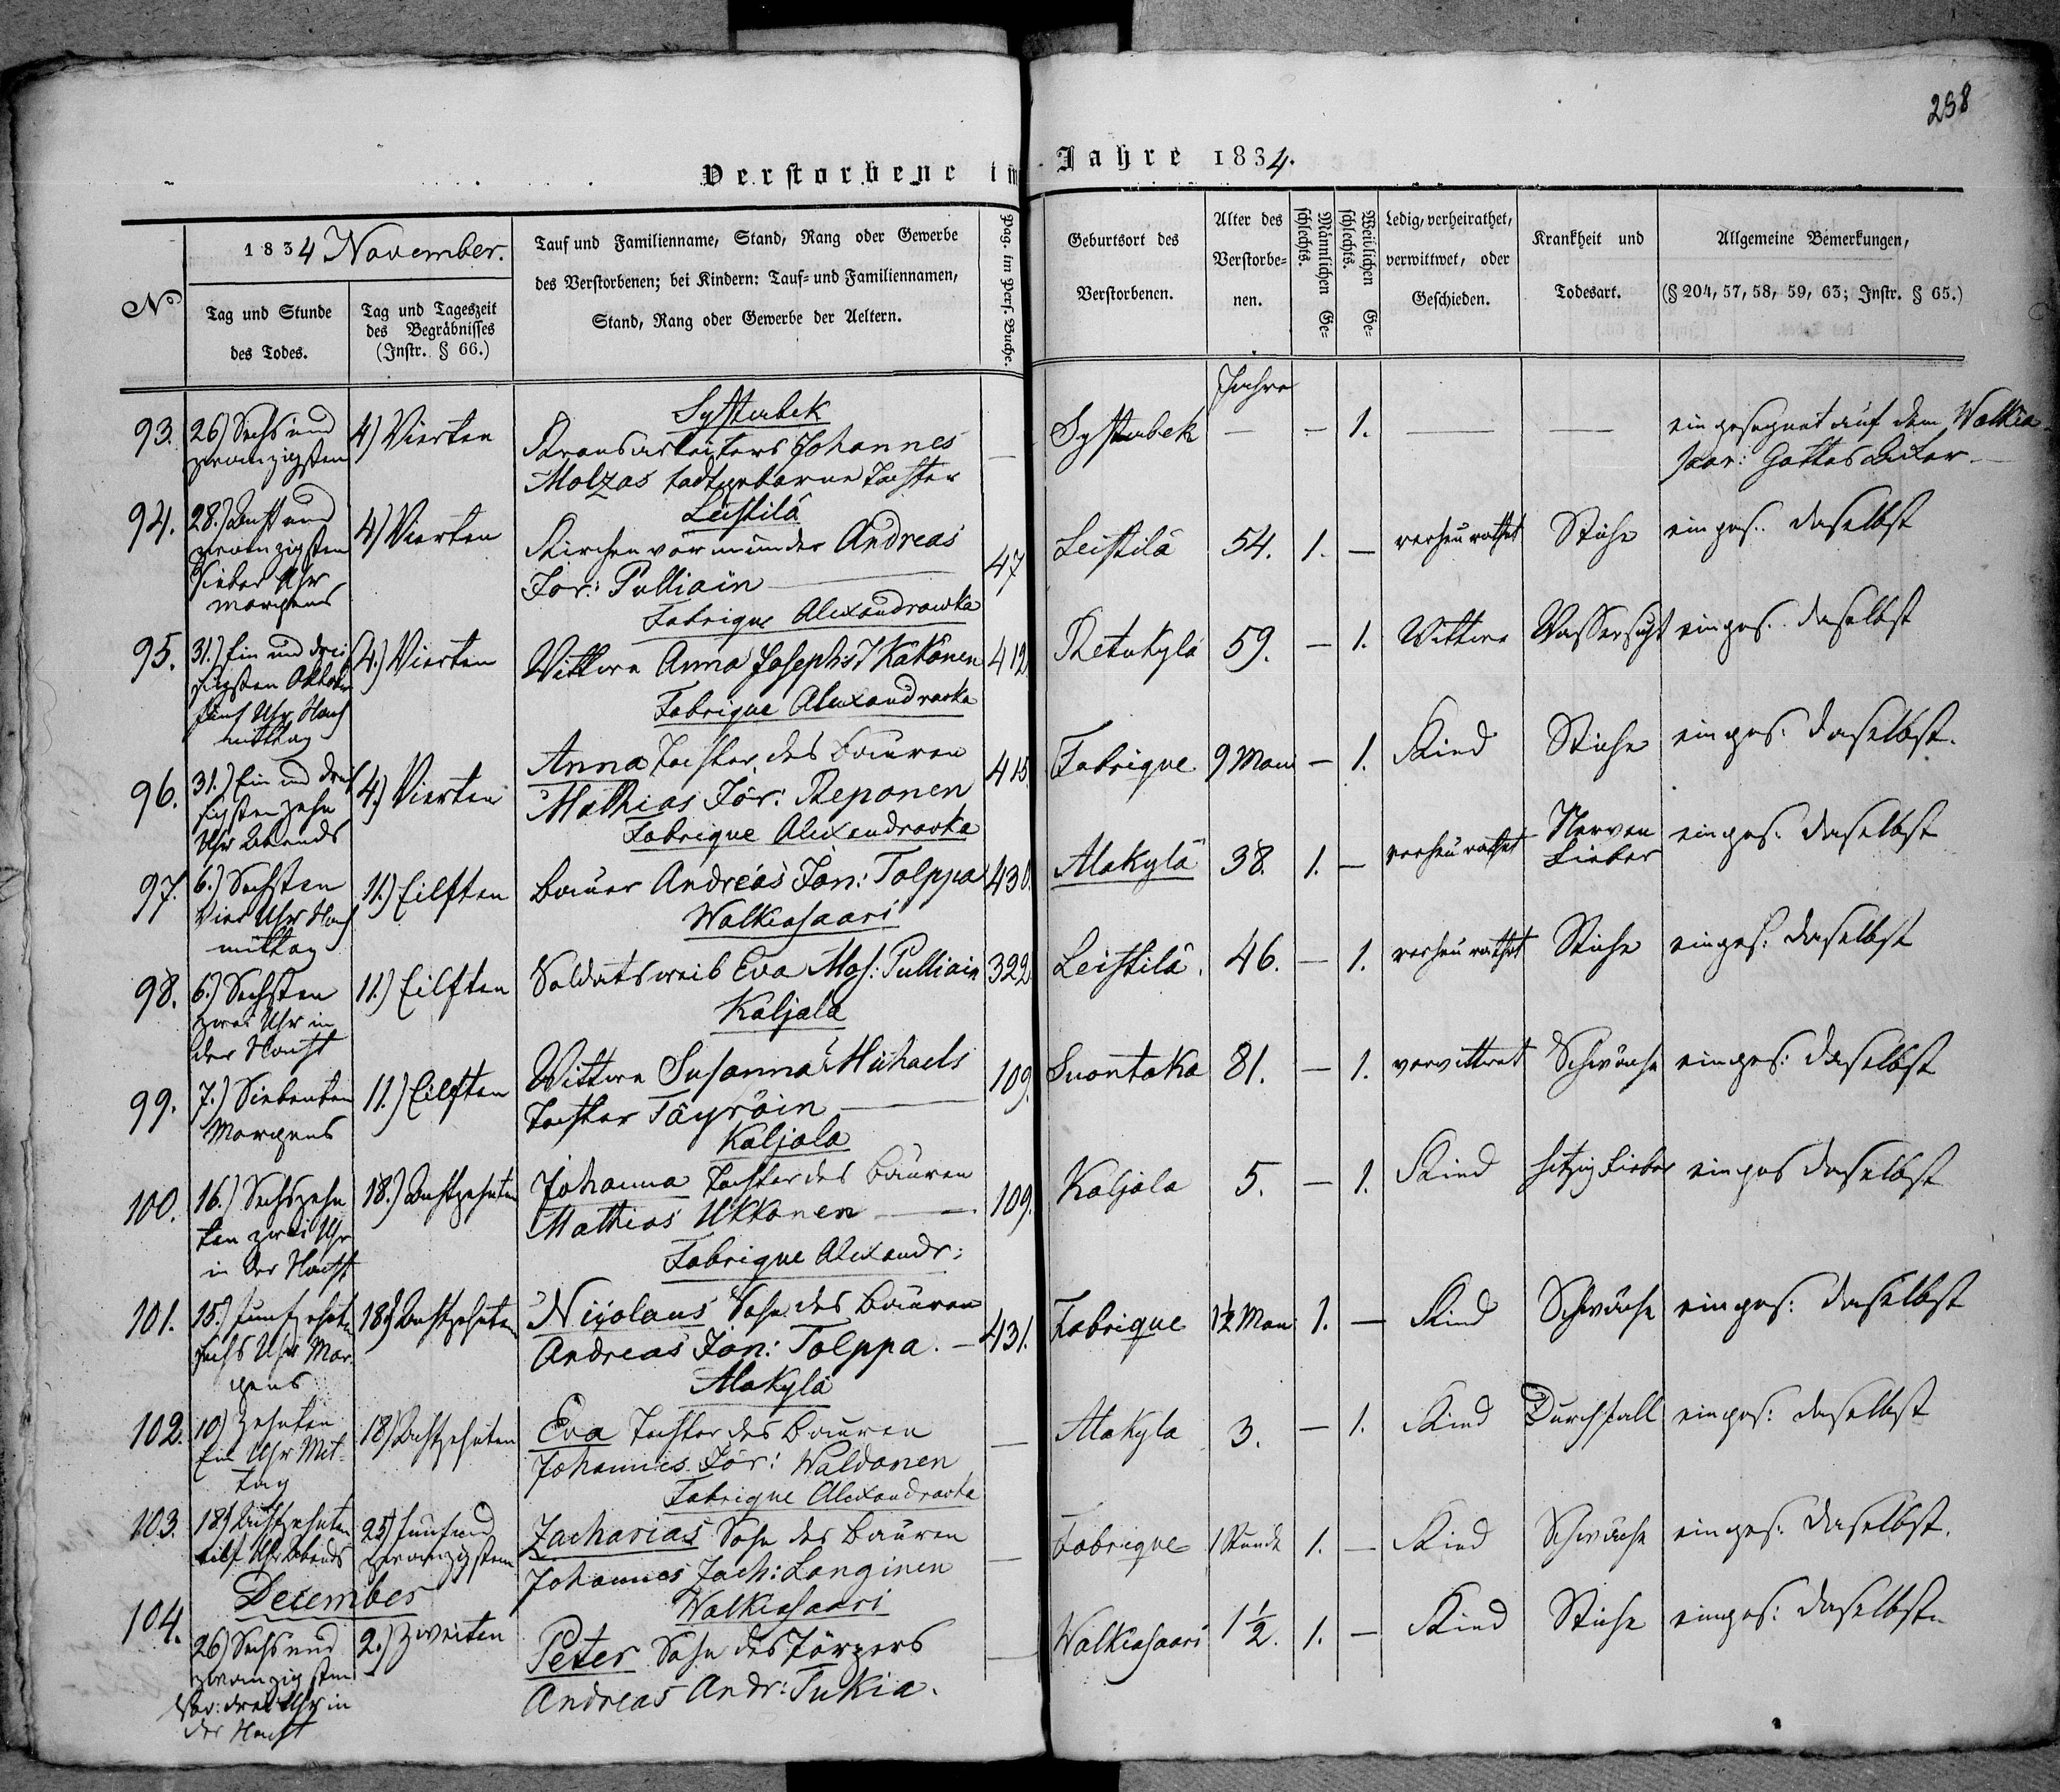 258
Verstorbene im Jahre 1834.
No
1834 November.
Tag und Stunde
des Todes.
Tag und Tageszeit
des Begräbnisses
(Instr. § 66.)
Tauf und Familienname, Stand, Rang oder Gewerbe
des Verstorbenen; bei Kindern: Tauf- und Familiennamen,
Stand, Rang oder Gewerbe der Aeltern.
Pag. im Pers. Buche.
Geburtsort des
Verstorbenen.
Alter des
Verstorbe-
nen.
Männlichen Ge-
schlechts.
Weiblichen Ge-
schlechts.
Ledig, verheirathet,
verwittwet, oder
Geschieden.
Krankheit und
Todesart.
Allgemeine Bemerkungen,
(§ 204, 57, 58, 59, 63; Instr. § 65.)
93.
26) Sechs und
zwanzigsten
4) Vierten
Systerbek
Kronsarbeiters Johannes
Molzas todtgeborne Tochter
Systerbek
Jahre
— — 1. — —
eingesegnet auf dem Walkea-
saar: Gottesacker
94.
28.) Acht und
zwanzigsten
Sieben Uhr
morgens
4) Vierten
Leistilä
Kirchenvormünder Andreas
Jör: Pulliain
47
Leistilä
54.
1. —
verheurathet
Stiche
einges. daselbst
95.
31.) Ein und drei
sigsten Oktober
fünf Uhr Nach
mittag
4.) Vierten
Fabrique Alexandrowka
Wittwe Anna Josephs T Kakonen
412
Retukylä
59.
— 1.
Wittwe
Wassersucht
einges. daselbst
96.
31.) Ein und dreis
sigsten zehn
Uhr Abends
4.) Vierten
Fabrique Alexandrovka
Anna Tochter des Bauren
Mathias Jör: Reponen
415
Fabrique
9 Mon
— 1.
Kind
Stiche
einges. daselbst.
97.
6.) Sechsten
Vier Uhr Nach
mittag
11.) Eilften
Fabrique Alexandrovka
Bauer Andreas Jon: Tolppa
430.
Alakylä
38.
1. —
verheurathet
Nerven
Fieber
einges. daselbst
98.
6.) Sechsten
zwei Uhr in
der Nacht
11.) Eilften
Walkeasaari
Soldatsweib Eva Mos: Pulliain
322
Leistilä.
46.
— 1.
verheurathet
Stiche
einges: daselbst
99.
7.) Siebenten
Morgens
11.) Eilften
Kaljala
Wittwe Susanna Michaels
Tochter Täyröin
109.
Suontaka
81.
— 1.
verwittwet
Schwäche
einges: daselbst
100.
16.) Sechszehn
ten zwei Uhr
in der Nacht
18.) Achtzehnten
Kaljala
Johanna Tochter des Bauren
Mathias Ukkonen
109.
Kaljala
5.
— 1.
Kind
hitzig Fieber
einges daselbst
101.
15.) Funfzehnten
sechs Uhr Mor
gens
18) Achtzehnten
Fabrique Alexandr:
Nicolaus Sohn des Bauren
Andreas Jon: Tolppa.
431.
Fabrique
1½ Mon
1. —
Kind
Schwäche
einges: daselbst
102.
10) Zehnten
Ein Uhr Mit-
tag
18) Achtzehnten
Alakylä
Eva Tochter des Bauren
Johannes Jör: Waldonen
Alakyla
3.
— 1.
Kind
Durchfall
einges: daselbst
103.
18) Achtzehnten
eilf Uhr Abends
25) Fünfund
zwanzigsten
Fabrique Alexandrovka
Zacharias Sohn des Bauren
Johannes Zach: Langinen
Fabrique
1 Stunde
1. —
Kind
Schwäche
einges: daselbst.
December
104.
26) Sechs und
zwanzigsten
Nov: drei Uhr in
der Nacht
2.) Zweiten
Walkeasaari
Peter Sohn des Törpers
Andreas Andr: Tukia.
Walkeasaari
1½.
1. —
Kind
Stiche
einges: daselbst.